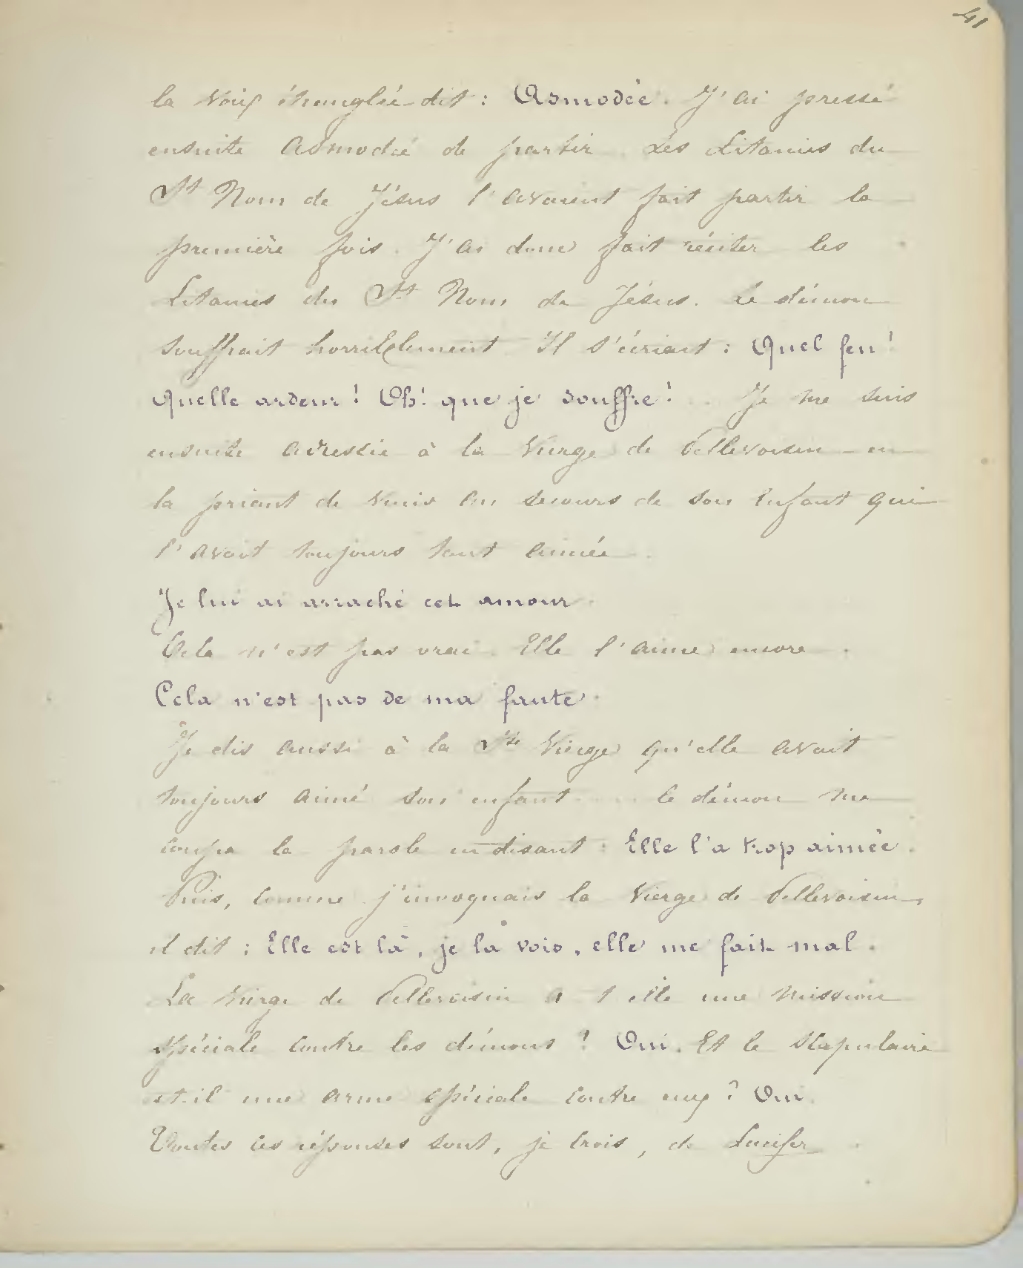 41
la voix étranglée dit : Asmodée. J'ai pressé
ensuite Asmodée de partir. Les Litanies du
St Nom de Jésus l'avaient fait partir la
première fois. J'ai donc fait réciter les
Litanies du St Nom de Jésus. Le démon
souffrait horriblement Il s'écriait : Quel feu !
Quelle ardeur ! Oh ! que je souffre ! .. Je me suis
ensuite adressée à la Vierge de Pellevoisin en
la priant de venir au secours de son Enfant qui
l'avait toujours tant aimée.
Je lui ai arraché cet amour.
Cela n'est pas vrai. Elle l'aime encore.
Cela n'est pas de ma faute.
Je dis aussi à la Ste Vierge qu'elle avait
toujours aimé son enfant .... le démon me
coupa la parole en disant : Elle l'a trop aimée.
Puis, comme j'invoquais la Vierge de Pellevoisin,
il dit : Elle est là, je la vois, elle me fait mal.
La Vierge de Pellevoisin a t elle une mission
spéciale contre les démons ? Oui. Et le Scapulaire
est-il une arme spéciale contre eux ? Oui.
Toutes ces réponses sont, je crois, de Lucifer.